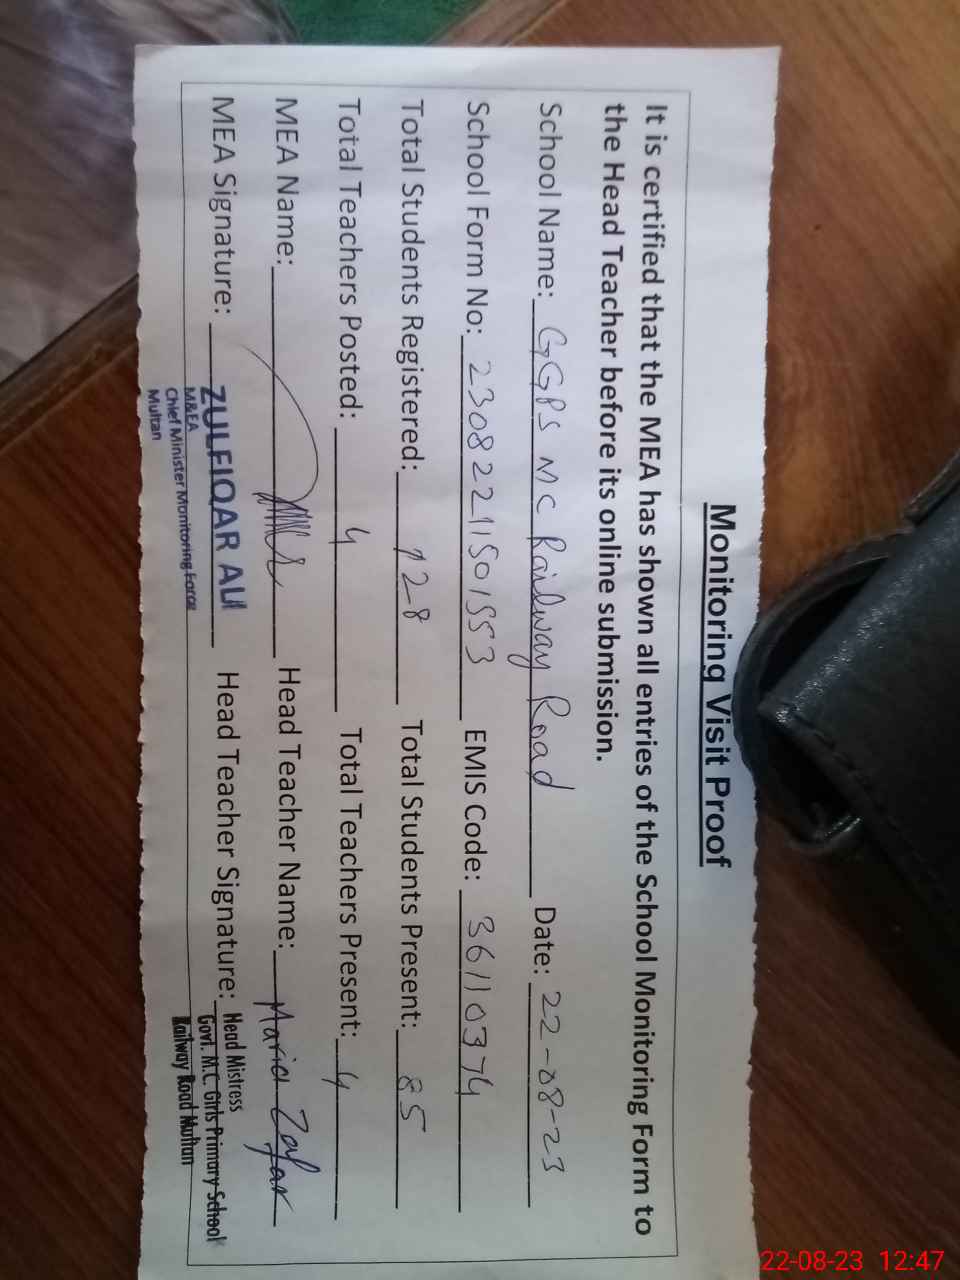 Monitoring Visit Proof
It is certified that the MEA has shown all entries of the School Monitoring Form to
the Head Teacher before its online submission.
School Name: GGPS MC Railway Road Date: 22-08-23
School Form No: 2308221150153 EMIS Code: 36110374
Total Students Registered: 128 Total Students Present: 85
Total Teachers Posted: 4 Total Teachers Present: 4
MEA Name: Head Teacher Name: Maria Zafar
MEA Signature: ZULFIQAR ALI Head Teacher Signature: Head Mistress
M&EA
Chief Minister Monitoring Force
Multan
Govt. M.C Girls Primary School
Railway Road Multan
22-08-23 12:47